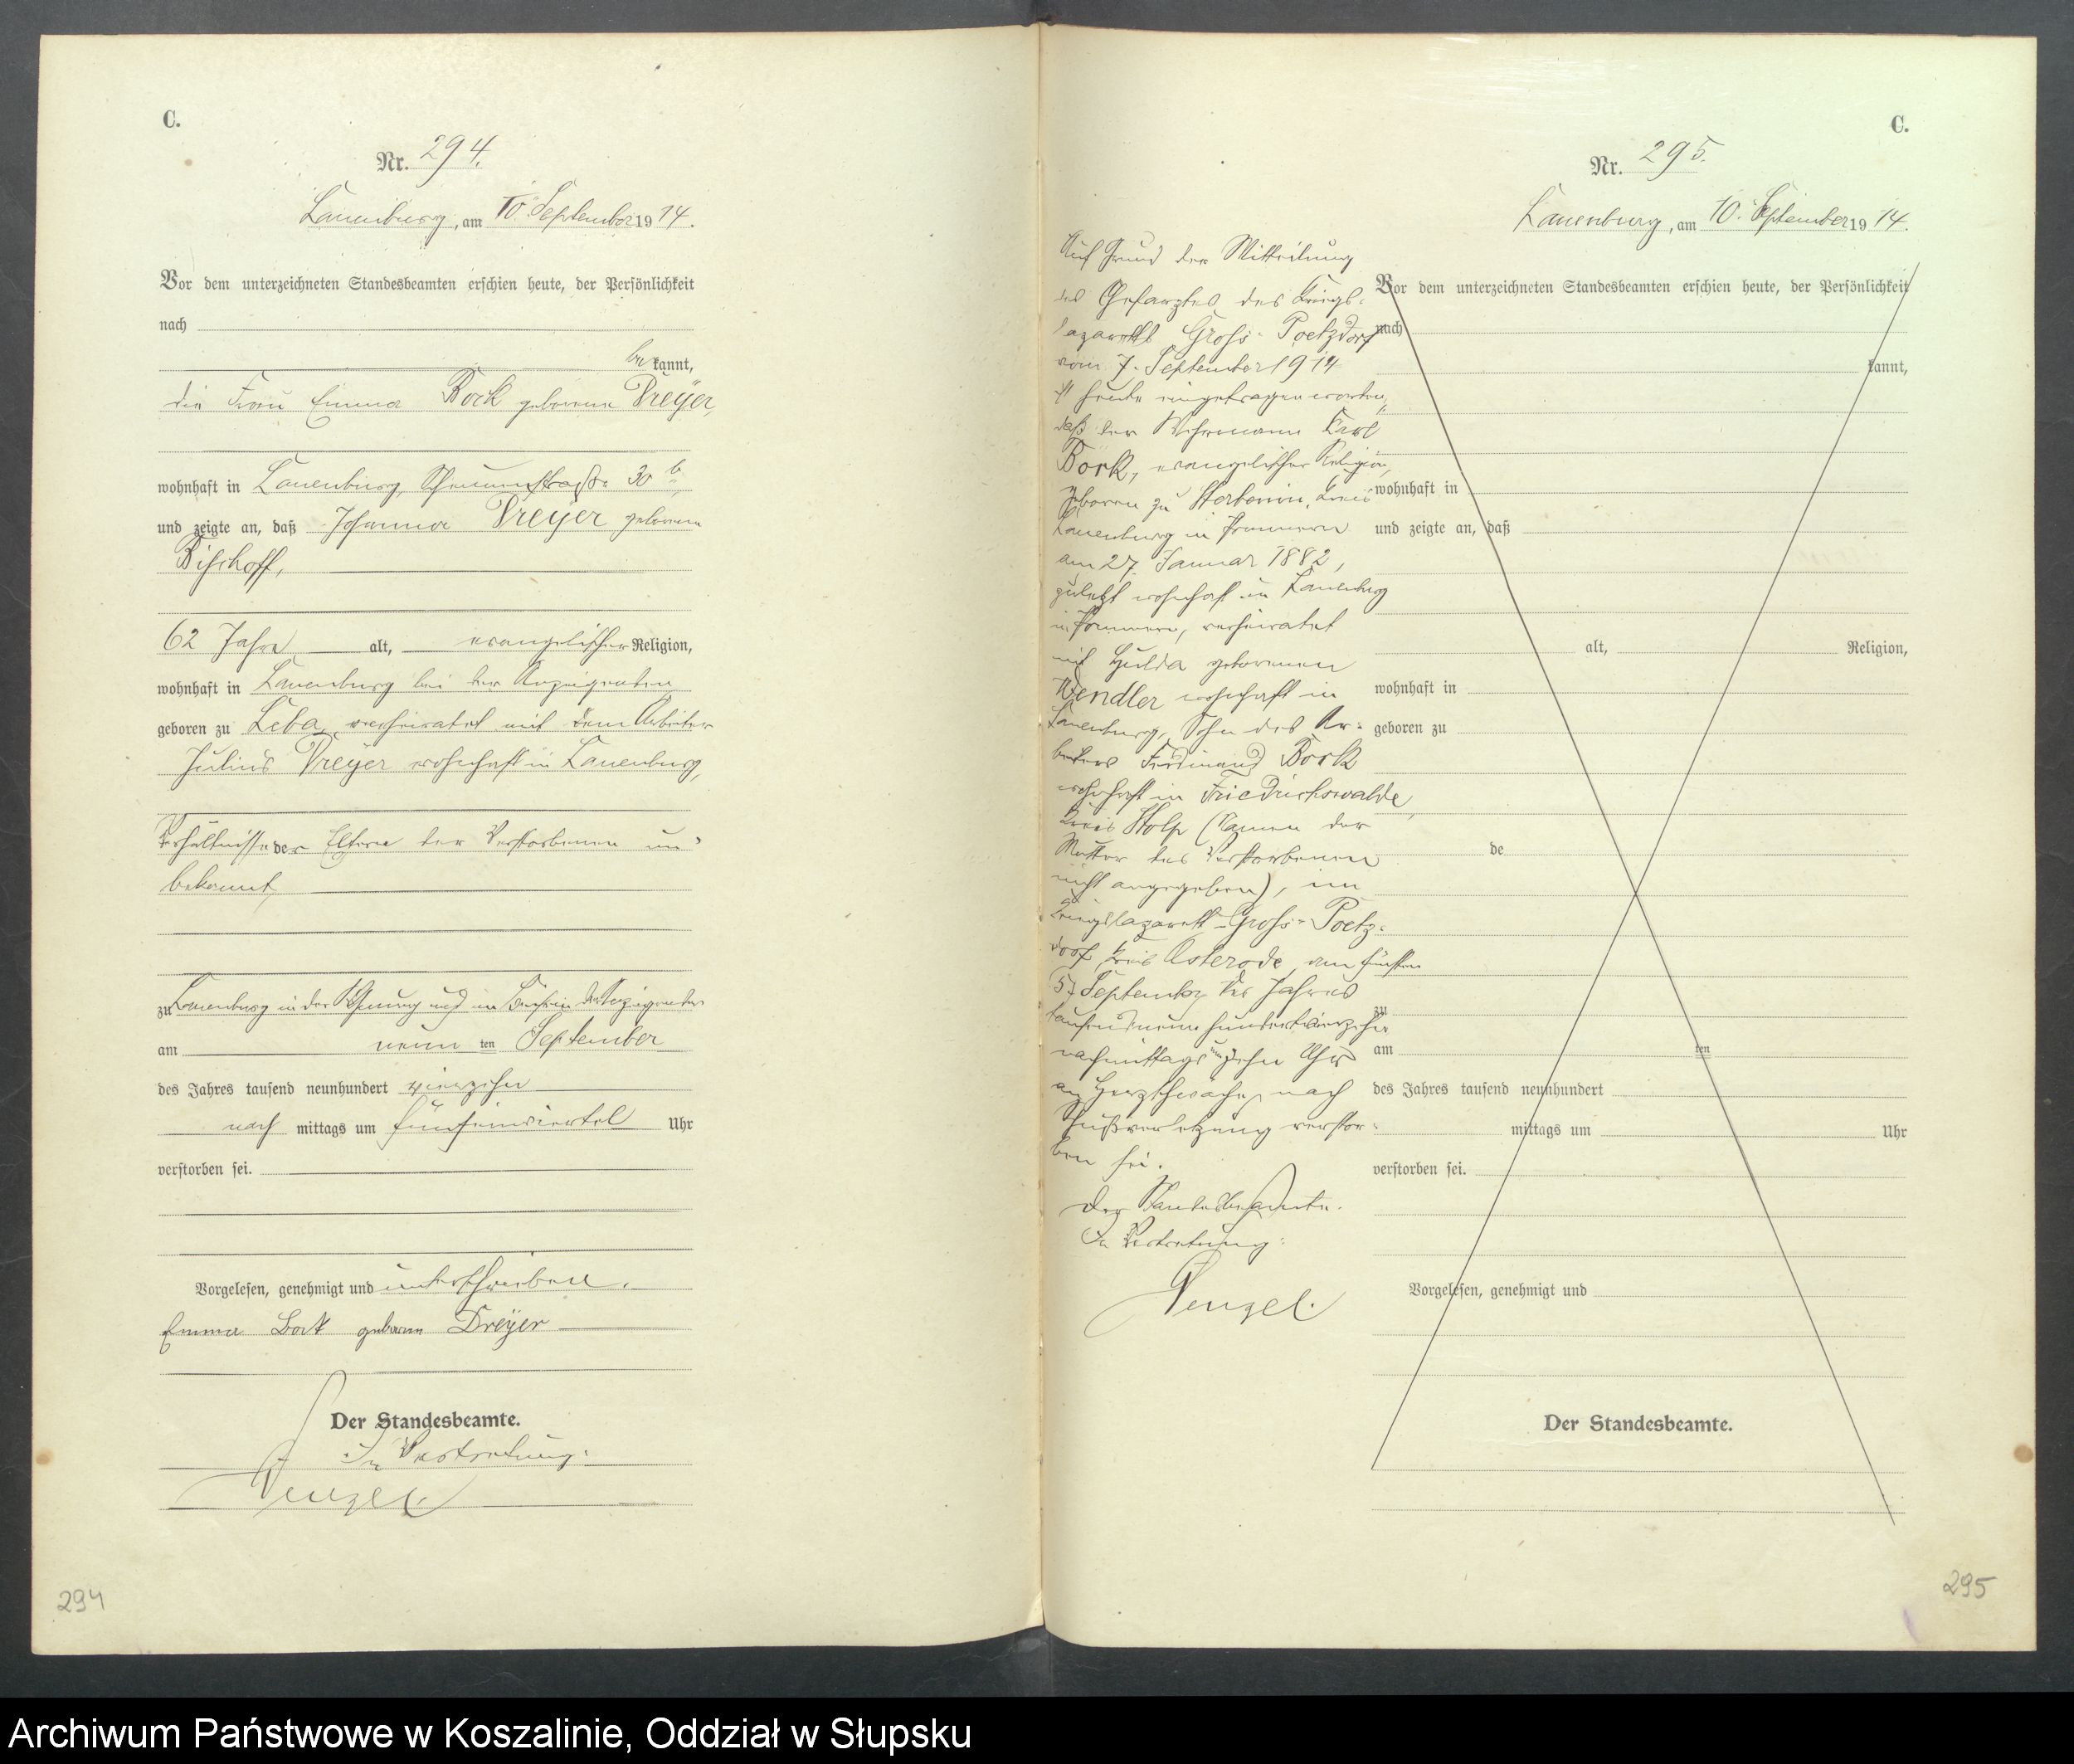 C.
Nr. 294.
Lauenburg, am 10. September 1914.
Vor dem unterzeichneten Standesbeamten erschien heute, der Persönlichkeit
nach
bekannt,
die Frau Emma Bock geborene Dreyer,
wohnhaft in Lauenburg, Scheunenstraße 30 b
und zeigte an, daß Johanna Dreyer geborene
Bischoff,
62 Jahre alt, evangelischer Religion,
wohnhaft in Lauenburg bei der Anzeigenden
geboren zu Leba, verheiratet mit dem Arbeiter
Julius Dreyer wohnhaft in Lauenburg,
Verhältnisse der Eltern der Verstorbenen un-
bekannt,
zu Lauenburg in der Wohnung und im Beisein der Anzeigenden
am neunten September
des Jahres tausend neunhundert vierzehn
nachmittags um fünfeinviertel Uhr
verstorben sei.
Vorgelesen, genehmigt und unterschrieben.
Emma Bock geborene Dreyer
Der Standesbeamte.
In Vertretung:
Wenzel.
294
C.
Nr. 295.
Lauenburg, am 10. September 1914.
Auf Grund der Mitteilung
des Chefarztes des Kriegs-
lazaretts Gross-Poetzdorf
vom 7. September 1914
ist heute eingetragen worden,
daß der Wehrmann Karl
Bork, evangelischer Religion,
geboren zu Kreis
Lauenburg in Pommern
am 27. Januar 1882,
zuletzt wohnhaft in Lauenburg
in Pommern, verheiratet
mit Hulda geborenen
Wendler wohnhaft in
Lauenburg, Sohn des Ar-
beiters Ferdinand Bork
wohnhaft in Friedrichswalde,
Kreis Stolp (Namen der
Mutter des Verstorbenen
nicht angegeben), im
Kriegslazarett-Gross-Poetz-
dorf, Kreis Osterode, am fünften
5) September des Jahres
tausendneunhundertvierzehn
nachmittags um zehn Uhr
an Herzschwäche nach
Schußverletzung verstor-
ben sei.
Der Standesbeamte.
In Vertretung:
Wenzel.
Vor dem unterzeichneten Standesbeamten erschien heute, der Persönlichkeit
nach
kannt,
wohnhaft in
und zeigte an, daß
alt, Religion,
wohnhaft in
geboren zu
de
zu
am ten
des Jahres tausend neunhundert
mittags um Uhr
verstorben sei.
Vorgelesen, genehmigt und
Der Standesbeamte.
295
Archiwum Państwowe w Koszalinie, Oddział w Słupsku